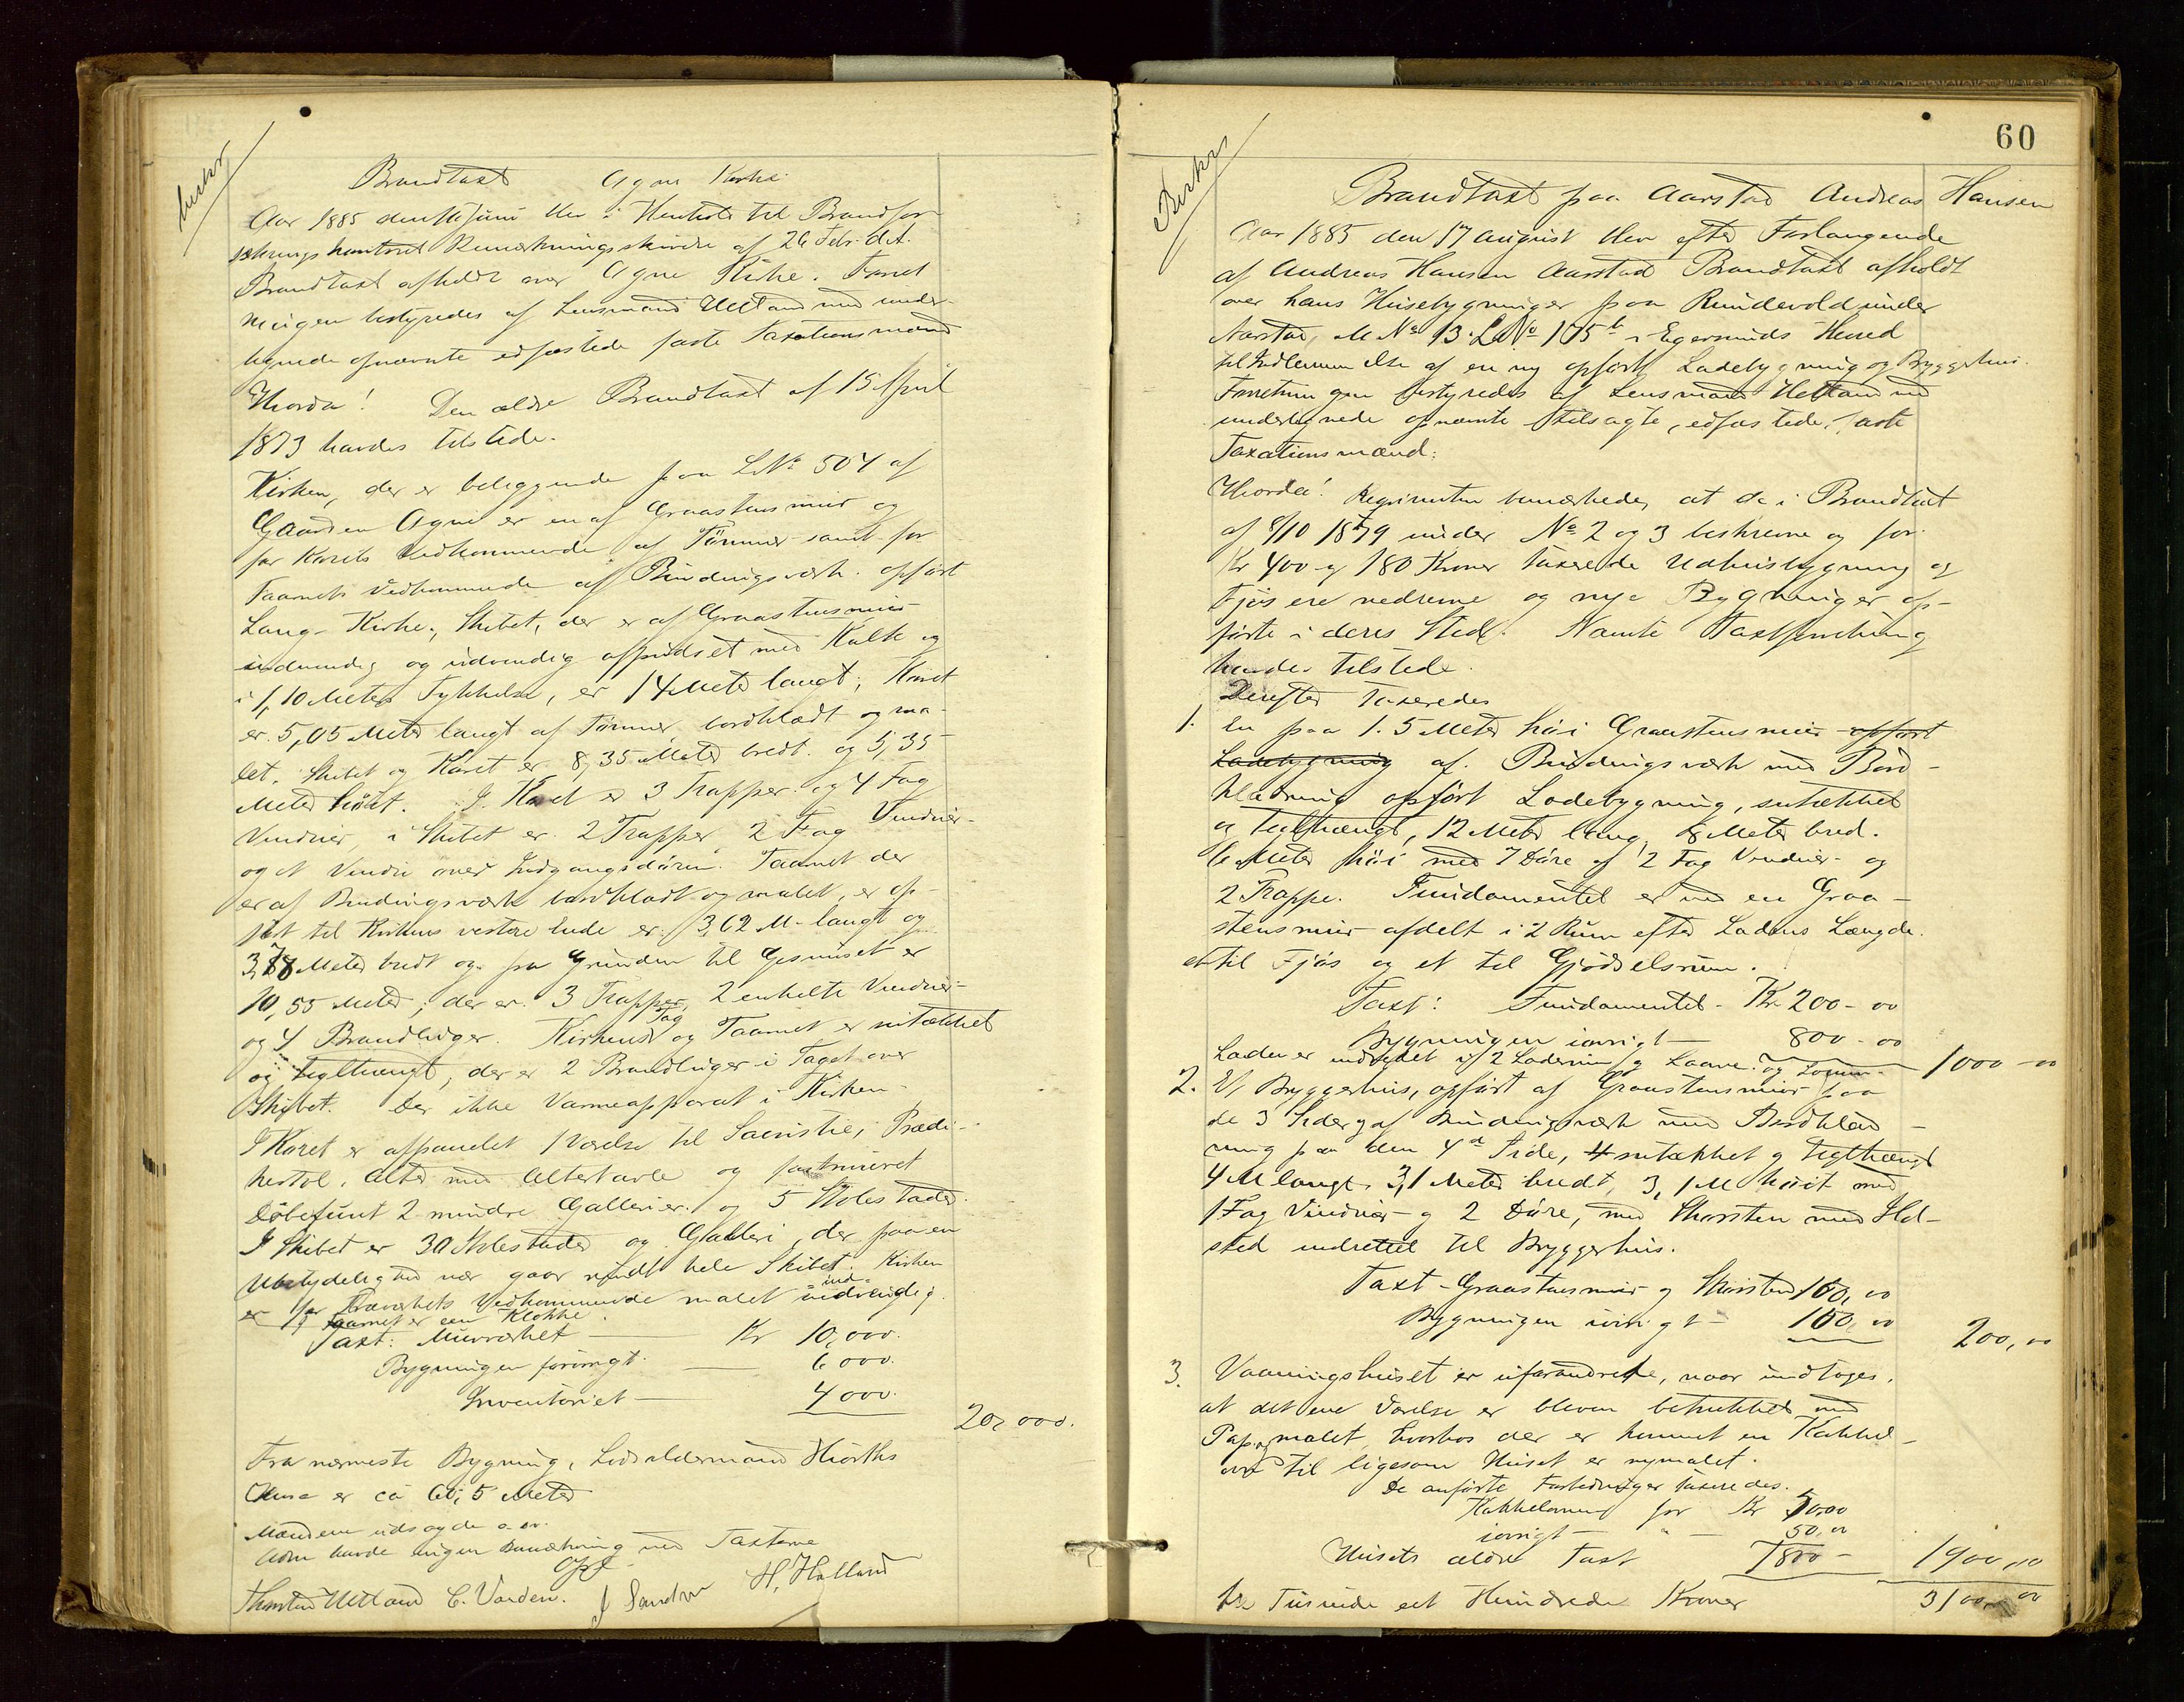 Brandtaxt Ogne Kirke
Aar 1885 den 16 Juni blev i Henhold til Brandfor-
sikringskontorets Bemærkningsskrivelse af 26 Febr. d.A.
Brandtaxt afholdt over Ogne Kirke. Forret
ningen bestyredes af Lensmand Hetland med under-
tegnede opnævnte edfæstede faste Taxationsmænd
Hvorda! Den ældre Brandtaxt af 15 April
1873 havdes tilstede.
Kirken, der er beliggende paa LNo 504 af
Gaarden Ogne er en af Graastensmur og
for Korets Vedkommende af Tømmer samt for
Taarnets Vedkommende af Bindingsværk opført
Lang-Kirke; Skibet, der er af Graastensmur
indvendig og udvendig afpudset med Kalk og
i 1,10 Meters Tykkelse, er 14 Meter langt; Koret
er 5,05 Meter langt af Tømmer bordklædt og ma-
let. Skibet og Koret er 8,35 Meter bredt og 5,35
Meter høit. I Koret er 3 Trapper og 4 Fag
Vinduer, i Skibet er 2 Trapper 2 Fag Vinduer
og et Vindu over Indgangsdøren. Taarnet der
er af Bindingsværk bordklædt og malet, er op-
ført til Kirkens vestre Ende er 3,62 M. langt og
3,78 Meter bredt og fra Grunden til Gesimset er
10,55 Meter; der er 3 Trapper, 2 enkelte Vinduer
og 4 Brandluger. Kirkens Tag og Taarnet er sutækket
og teglhængt, der er 2 Brandluger i Taget over
Skibet. Der ikke Varmeapparat i Kirken.
I Koret er afpanelet 1 Værelse til Sacristie, Prædi-
kestol, Alter med Altertavle og
Døbefunt 2 mindre Gallerier og 5 Stolestader.
I Skibet er 30 Stolestader og Galleri, der paa en
Ubetydelighed nær gaar rundt hele Skibet. Kirken
er for Træværkets Vedkommende malet ind- udvendig.
I Taarnet er een Klokke.
Taxt: Murværket — Kr 10,000.
Bygningen forøvrigt — 6000.
Inventariet — 4000.
20,000.
Fra nærmeste Bygning, Lodsoldermand Hiorths
Huse er ca 60,5 Meter
Mændene udsagde
havde ingen Bemærkning ved Taxterne
Opl.
Thorsten Hetland C. Varden. H. Helland
60
Brandtaxt paa Aarstad Andreas Hansen
Aar 1885 den 17 August blev efter Forlangende
af Andreas Hansen Aarstad Brandtaxt afholdt
over hans Husebygninger paa Rundevold under
Aarstad, M No 13 LNo 175b i Egersunds Herred
til Indlemmelse af en ny opført Ladebygning og Bryggerhus.
Forretningen bestyredes af Lensmand Hetland med
undertegnede opnævnte tilsagte, edfæstede, faste
Taxationsmænd:
Hvorda! Requirenten bemærkede, at de i Brandtaxt
af 8/10 1879 under No 2 og 3 beskrevne og for
Kr 400 og 180 Kroner taxerede Udhusbygning og
Fjøs ere nedrevne og nye Bygninger op-
førte i deres Sted. Nævnte Taxtforretning
havdes tilstede.
Derefter taxeredes
1. En paa 1.5 Meter høi Graastensmur opført
Ladebygning af Bindingsværk med Bord-
klædning opført Ladebygning, sutækket
og teglhængt, 12 Meter lang, 8 Meter bred.
6 Meter høi med 7 Døre af 2 Fag Vinduer og
2 Trappe. Fundamentet er ved en Graa-
stensmur afdelt i 2 Rum efter Ladens Længde.
et til Fjøs og et til Gjødselsrum.
Taxt: Fundamentet Kr 200-00
Bygningen iøvrigt — 800-00
Laden er indredet i 2 Laderum og Laave. 1000-00
2. Et Bryggerhus, opført af Graastensmur paa
de 3 Sider og af Bindingsværk med Bordklæd-
ning paa den 4de Side, sutækket og teglhængt
4 M langt 3,1 Meter bredt, 3,1 M høit med
1 Fag Vinduer og 2 Døre, med Skorsten med Ild-
sted indrettet til Bryggerhus.
Taxt Graastensmur og Skorsten 100,00
Bygningen iøvrigt — 100,00
200,00
3. Vaaningshuset er uforandrede, naar undtages,
at det ene Værelse er bleven betrukket med
Pap og malet, hvorhos der er kommet en Kakkel-
ovn til ligesom Huset er nymalet.
De anførte Forbedringer taxeredes.
Kakkelovnen for Kr 50,00
iøvrigt — " — 50,00
Husets ældre Taxt 1800- 1900,00
tre Tusinde eet Hundrede Kroner 3100,00